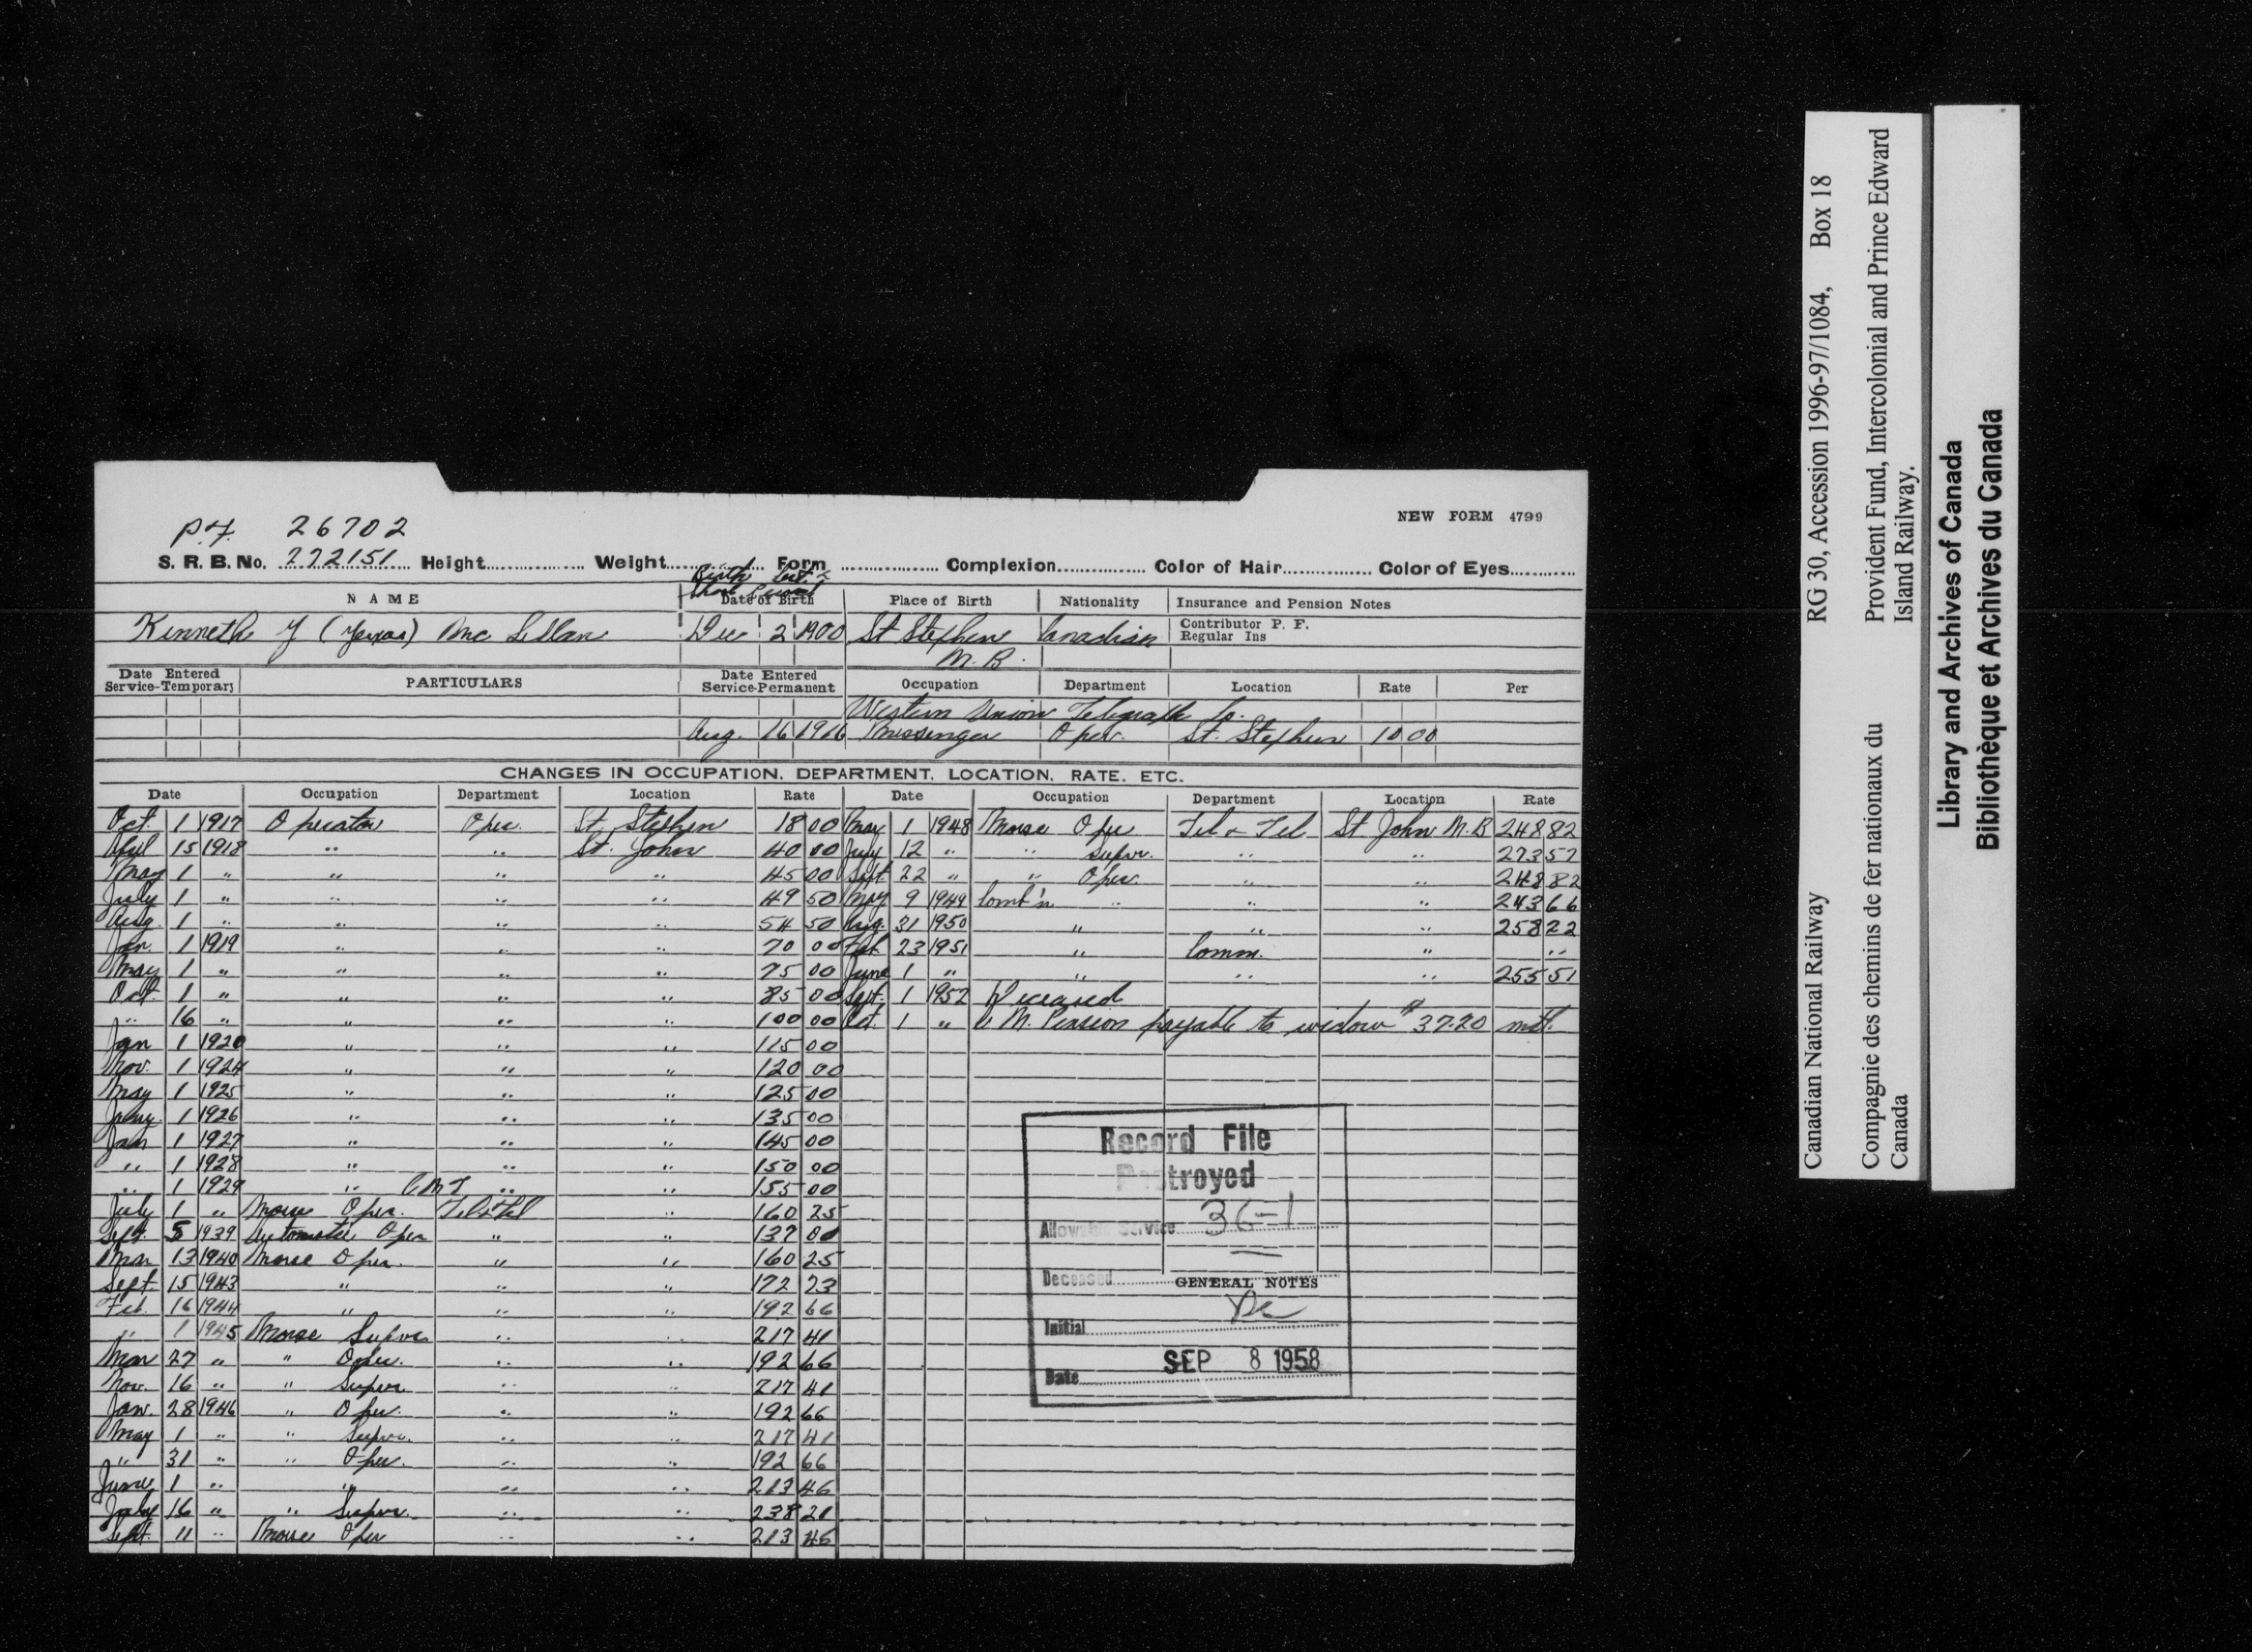 P.F. 26702
NEW FORM 4799
S. R. B. No. 272151 Height Weight Form Complexion Color of Hair Color of Eyes
Birth Cert.
NAME Date of Birth Place of Birth Nationality Insurance and Pension Notes
Kenneth Y (Yerxas) Mc Lellan Dec 2 1900 St Stephen Canadian Contributor P. F.
Regular Ins
N. B.
Date Entered Service-Temporary PARTICULARS Date Entered Service-Permanent Occupation Department Location Rate Per
Western Union Telegraph Co.
Aug. 16 1916 Messenger Oper. St. Stephen 10 00
CHANGES IN OCCUPATION, DEPARTMENT, LOCATION, RATE, ETC.
Date Occupation Department Location Rate Date Occupation Department Location Rate
Oct. 1 1917 Operator Oper. St. Stephen 18 00 May 1 1948 Morse Oper Tel & Tel St John N.B 248 82
April 15 1918 " " St. John 40 00 July 12 " " Supvr. " " 273 57
May 1 " " " " 45 00 Sept. 22 " " Oper. " " 248 82
July 1 " " " " 49 50 May 9 1949 Comb'n " " " 243 66
Aug. 1 " " " " 54 50 Aug. 31 1950 " " " 258 22
Jan. 1 1919 " " " 70 00 Feb 23 1951 " Comm. " "
May 1 " " " " 75 00 June 1 " " " " 255 51
Oct. 1 " " " " 85 00 Sept. 1 1952 Deceased
" 16 " " " " 100 00 Oct. 1 " C M. Pension payable to widow $37.20 mth.
Jan 1 1920 " " " 115 00
Nov. 1 1924 " " " 120 00
May 1 1925 " " " 125 00
1 1926 " " " 135 00
Jan 1 1927 " " " 145 00
" 1 1928 " " " 150 00
" 1 1929 " C.N.T " " 155 00
July 1 " Morse Oper. Tel & Tel " 160 25
Sept. 5 1939 Automatic Oper " " 137 00
Mar 13 1940 Morse Oper. " " 160 25
Sept. 15 1943 " " " 172 23
Feb. 16 1944 " " " 192 66
" 1 1945 Morse Supvr " " 217 41
Mar 27 " " Oper. " " 192 66
Nov. 16 " " Supvr " " 217 41
Jan. 28 1946 " Oper. " " 192 66
May 1 " " Supvr. " " 217 41
" 31 " " Oper. " " 192 66
June 1 " " " " 213 46
July 16 " " Supvr. " " 238 21
Sept. 11 " Morse Oper " " 213 46
Record File
Destroyed
Allowable Service 36-1
Deceased GENERAL NOTES
Initial
Date SEP 8 1958
Canadian National Railway RG 30, Accession 1996-97/1084, Box 18
Compagnie des chemins de fer nationaux du Canada
Provident Fund, Intercolonial and Prince Edward Island Railway.
Library and Archives of Canada
Bibliothèque et Archives du Canada